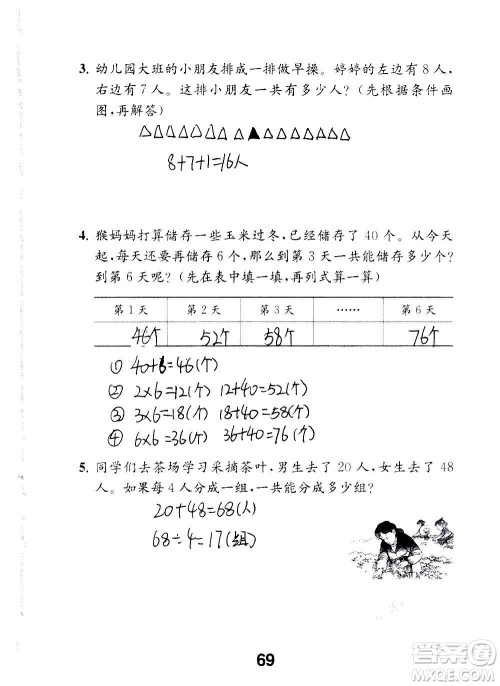 3. 幼儿园大班的小朋友排成一排做早操。婷婷的左边有 8 人，
右边有 7 人。这排小朋友一共有多少人？（先根据条件画
图，再解答）
△△△△△△△△▲△△△△△△△
8+7+1=16人
4. 猴妈妈打算储存一些玉米过冬，已经储存了 40 个。从今天
起，每天还要再储存 6 个，那么到第 3 天一共能储存多少个？
到第 6 天呢？（先在表中填一填，再列式算一算）
第 1 天 第 2 天 第 3 天 …… 第 6 天
46个 52个 58个 76个
① 40+6=46(个)
② 2×6=12(个) 12+40=52(个)
③ 3×6=18(个) 18+40=58(个)
④ 6×6=36(个) 36+40=76(个)
5. 同学们去茶场学习采摘茶叶，男生去了 20 人，女生去了 48
人。如果每 4 人分成一组，一共能分成多少组？
20+48=68(人)
68÷4=17(组)
69
作业帮